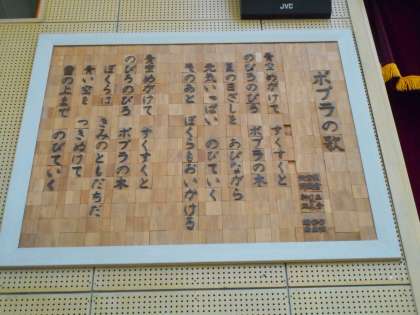 JVC
ポプラの歌
青空めがけて すくすくと
のびろのびろ ポプラの木
夏の日ざしを あびながら
元気いっぱい のびていく
そのあと ぼくらもおいかける
青空めがけて すくすくと
のびろのびろ ポプラの木
ぼくらは きみのともだちだ
青い空を つきぬけて
雲の上まで のびていく